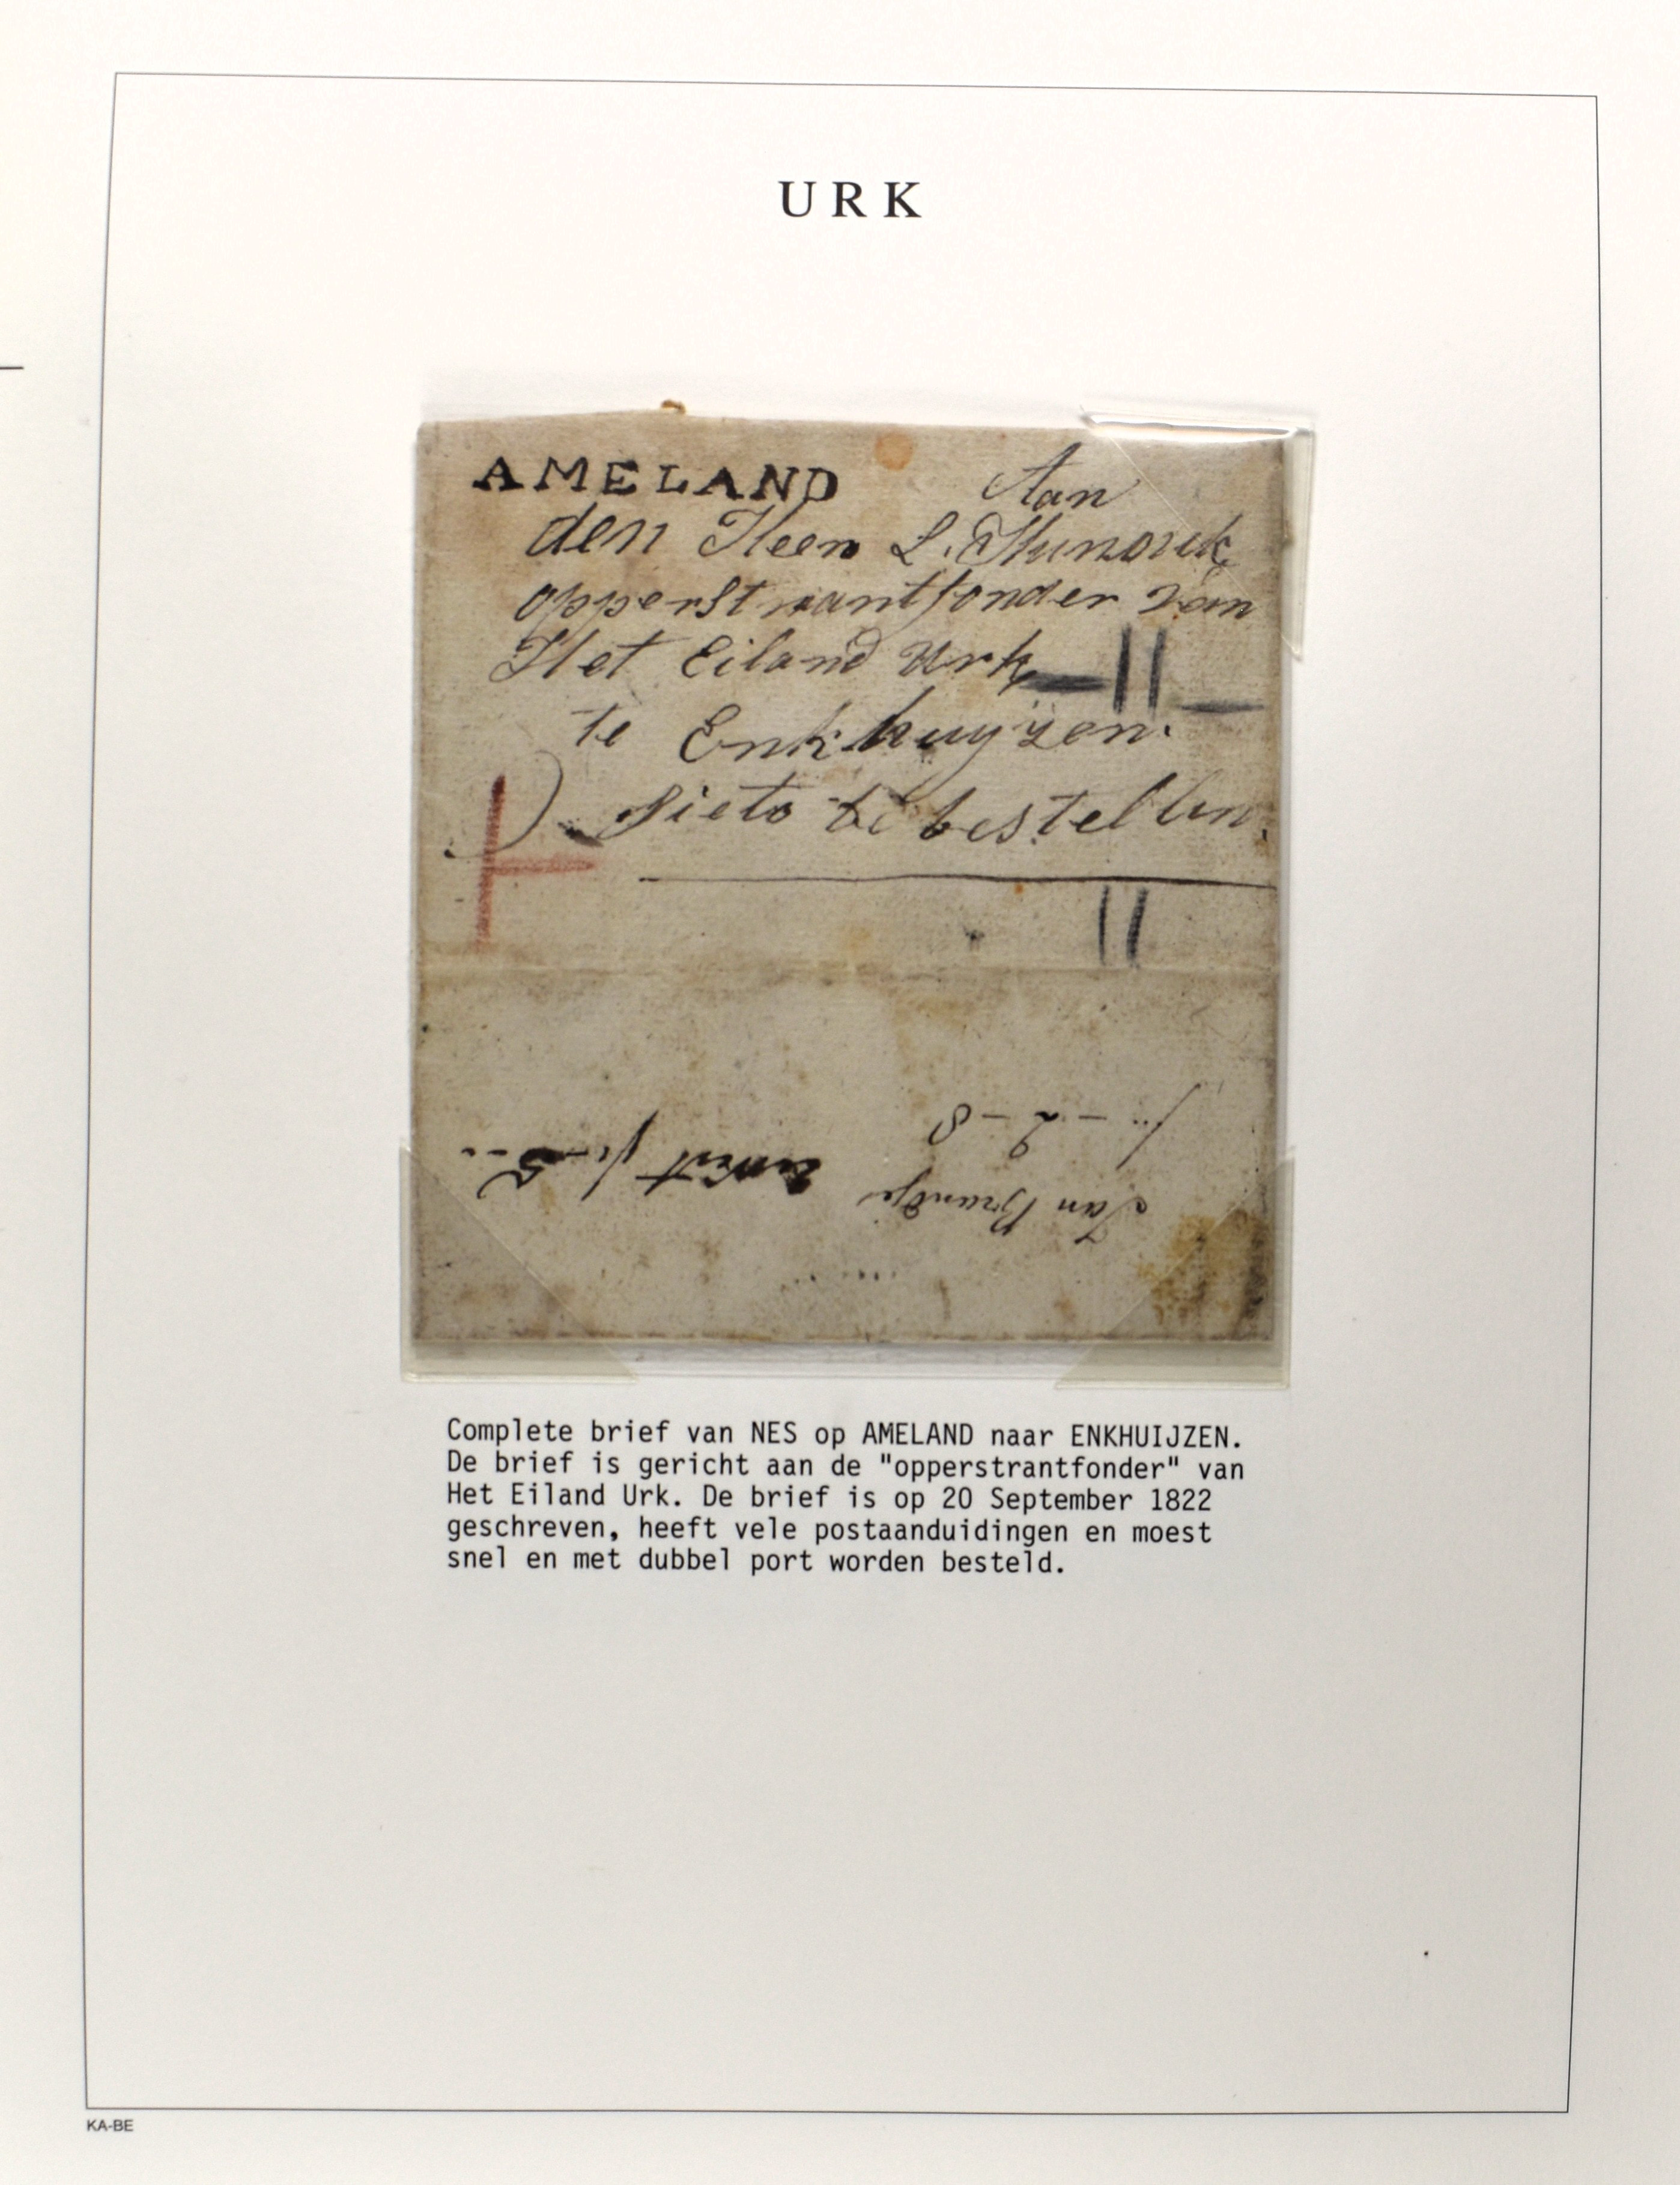 URK
AMELAND
Aan
den Heer L.
opperstrantfonder van
Het Eiland Urk
te Enkhuyzen.
Sieto te bestellen.
Jan
Complete brief van NES op AMELAND naar ENKHUIJZEN.
De brief is gericht aan de "opperstrantfonder" van
Het Eiland Urk. De brief is op 20 September 1822
geschreven, heeft vele postaanduidingen en moest
snel en met dubbel port worden besteld.
KA-BE